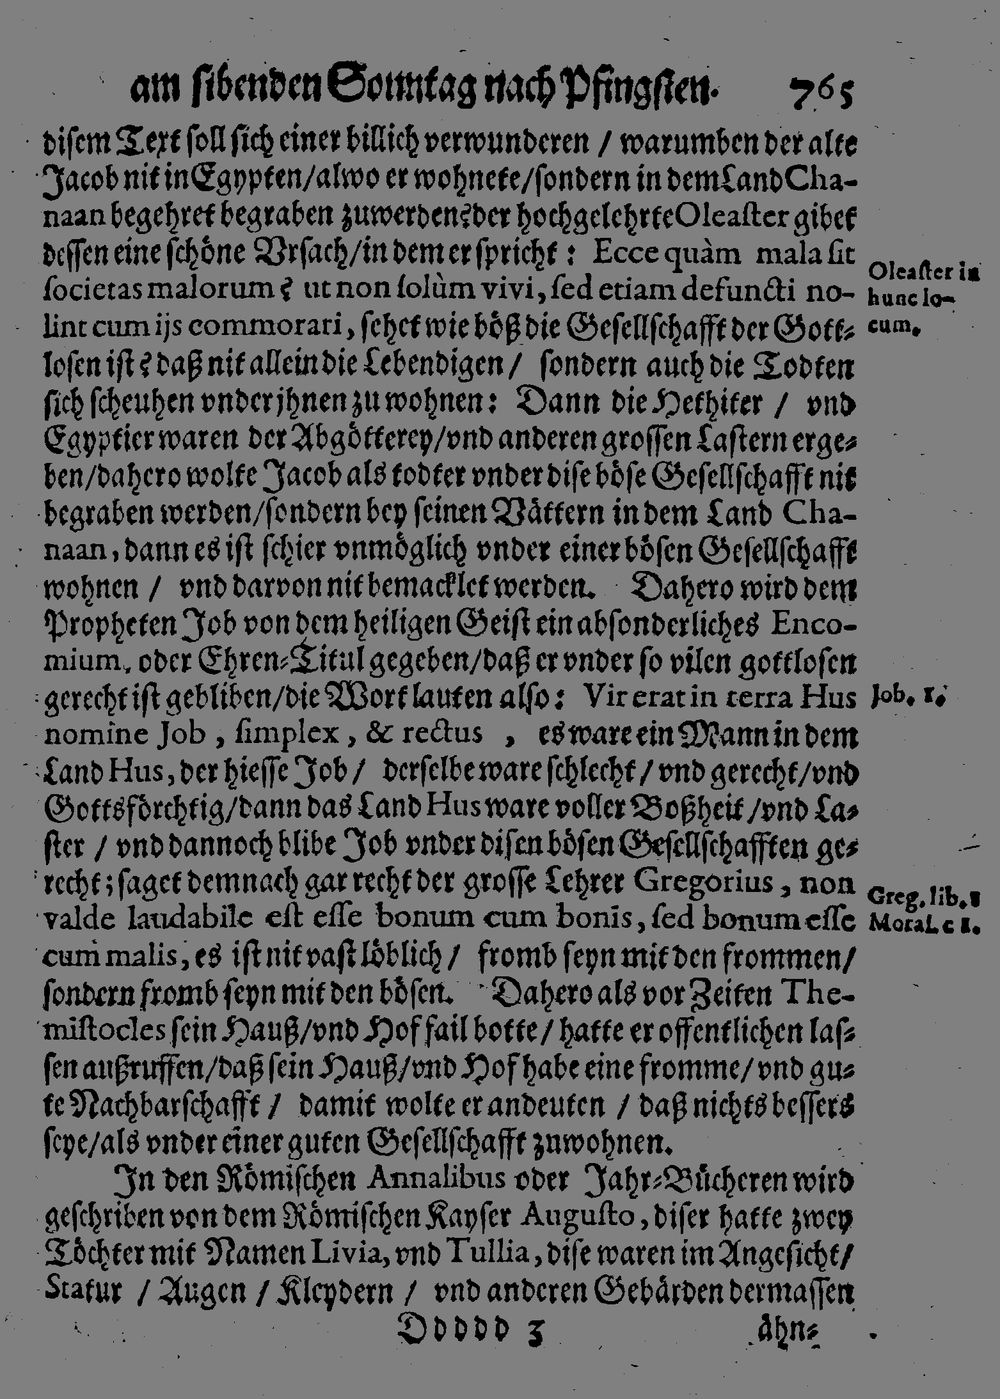 am sibenden Sonntag nach Pfingsten. 765
disem Text soll sich einer billich verwunderen / warumben der alte
Jacob nit in Egypten/alwo er wohnete/sondern in dem Land Cha-
naan begehret begraben zuwerden? der hochgelehrte Oleaster gibet
dessen eine schöne Vrsach/in dem er spricht: Ecce quàm mala sit
societas malorum? ut non solùm vivi, sed etiam defuncti no-
lint cum ijs commorari, sehet wie böß die Gesellschafft der Gott-
losen ist? daß nit allein die Lebendigen / sondern auch die Todten
sich scheuhen vnder jhnen zu wohnen: Dann die Hethiter / vnd
Egyptier waren der Abgötterey/vnd anderen grossen Lastern erge-
ben/dahero wolte Jacob als todter vnder dise böse Gesellschafft nit
begraben werden/sondern bey seinen Vättern in dem Land Cha-
naan, dann es ist schier vnmöglich vnder einer bösen Gesellschafft
wohnen / vnd darvon nit bemacklet werden. Dahero wird dem
Propheten Job von dem heiligen Geist ein absonderliches Enco-
mium, oder Ehren-Titul gegeben/daß er vnder so vilen gottlosen
gerecht ist gebliben/die Wort lauten also: Vir erat in terra Hus
nomine Job, simplex, & rectus, es ware ein Mann in dem
Land Hus, der hiesse Job/ derselbe ware schlecht/vnd gerecht/vnd
Gottsförchtig/dann das Land Hus ware voller Boßheit/vnd La-
ster / vnd dannoch blibe Job vnder disen bösen Gesellschafften ge-
recht; saget demnach gar recht der grosse Lehrer Gregorius, non
valde laudabile est esse bonum cum bonis, sed bonum esse
cum malis, es ist nit vast löblich / fromb seyn mit den frommen/
sondern fromb seyn mit den bösen. Dahero als vor Zeiten The-
mistocles sein Hauß/vnd Hof fail botte/ hatte er offentlichen las-
sen außruffen/daß sein Hauß/vnd Hof habe eine fromme/vnd gu-
te Nachbarschafft / damit wolte er andeuten / daß nichts bessers
seye/als vnder einer guten Gesellschafft zuwohnen.
In den Römischen Annalibus oder Jahr-Bücheren wird
geschriben von dem Römischen Kayser Augusto, diser hatte zwey
Töchter mit Namen Livia, vnd Tullia, dise waren im Angesicht/
Statur / Augen / Kleydern / vnd anderen Gebärden dermassen
Ddddd 3 ähn-
Oleaster in
hunc lo-
cum.
Job. 1.
Greg. lib. 1
Moral. c 1.